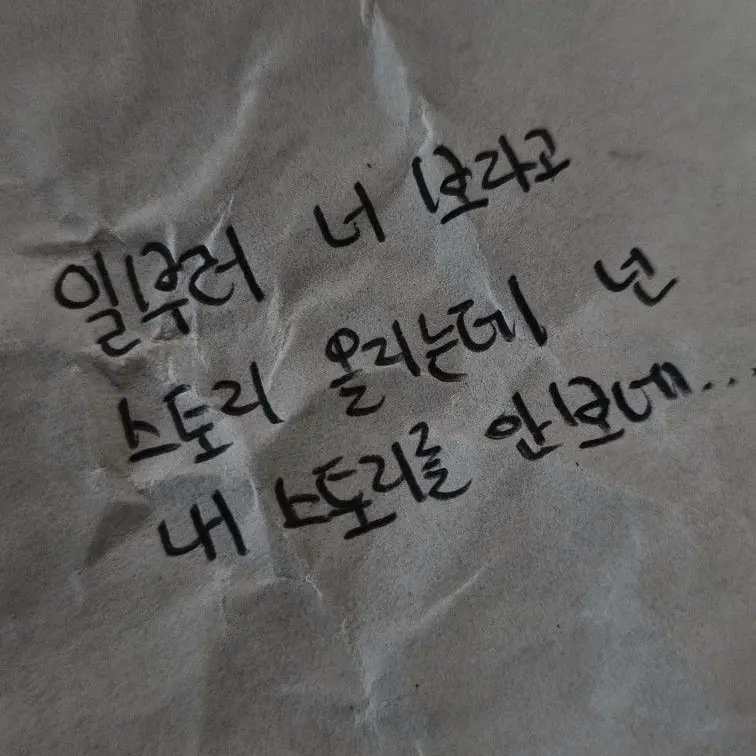 일부러 너 보라고
스토리 올리는데 넌
내 스토리를 안보네...